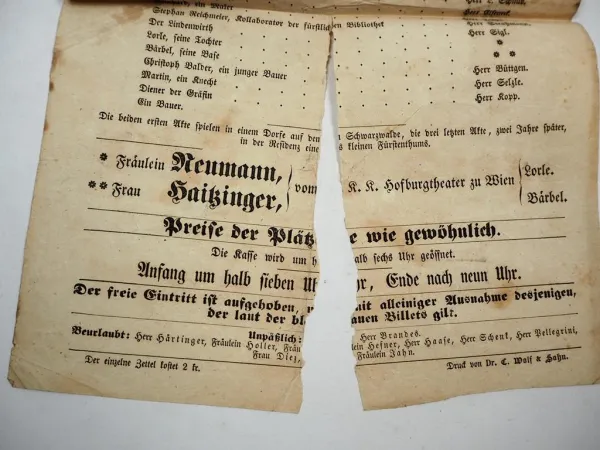 ein Maler
Stephan Reichmeier, Kollaborator der fürstlichen Bibliothek
Der Lindenwirth Herr Sigl.
Lorle, seine Tochter *
Bärbel, seine Base * *
Christoph Balder, ein junger Bauer Herr Büttgen.
Martin, ein Knecht Herr Selzle.
Diener der Gräfin Herr Kopp.
Ein Bauer.
Die beiden ersten Akte spielen in einem Dorfe auf den Schwarzwalde, die drei letzten Akte, zwei Jahre später,
in der Residenz eine s kleinen Fürstenthums.
* Fräulein Neumann, vom K. K. Hofburgtheater zu Wien Lorle.
** Frau Haitzinger, Bärbel.
Preise der Plätz e wie gewöhnlich.
Die Kasse wird um h alb sechs Uhr geöffnet.
Anfang um halb sieben Uh r, Ende nach neun Uhr.
Der freie Eintritt ist aufgehoben, mit alleiniger Ausnahme desjenigen,
der laut der bl auen Billets gilt.
Beurlaubt: Herr Härtinger, Fräulein Holler, Frau Herr Brandes.
Unpäßlich: Frau Diez, lein Hefner, Herr Haase, Herr Schenk, Herr Pellegrini,
Fräulein Jahn.
Der einzelne Zettel kostet 2 kr. Druck von Dr. C. Wolf & Sohn.